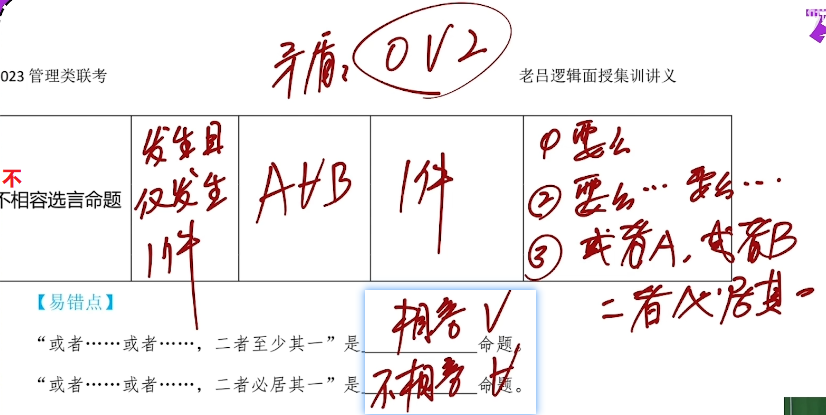 矛盾: 0 V 2
023 管理类联考
老吕逻辑面授集训讲义
不
不相容选言命题
发生且
仅发生
1件
A∀B
1件
① 要么
② 要么… 要么…
③ 或者A, 或者B
二者必居其一
【易错点】
“或者……或者……，二者至少其一”是 相容 V 命题。
“或者……或者……，二者必居其一”是 不相容 ∀ 命题。